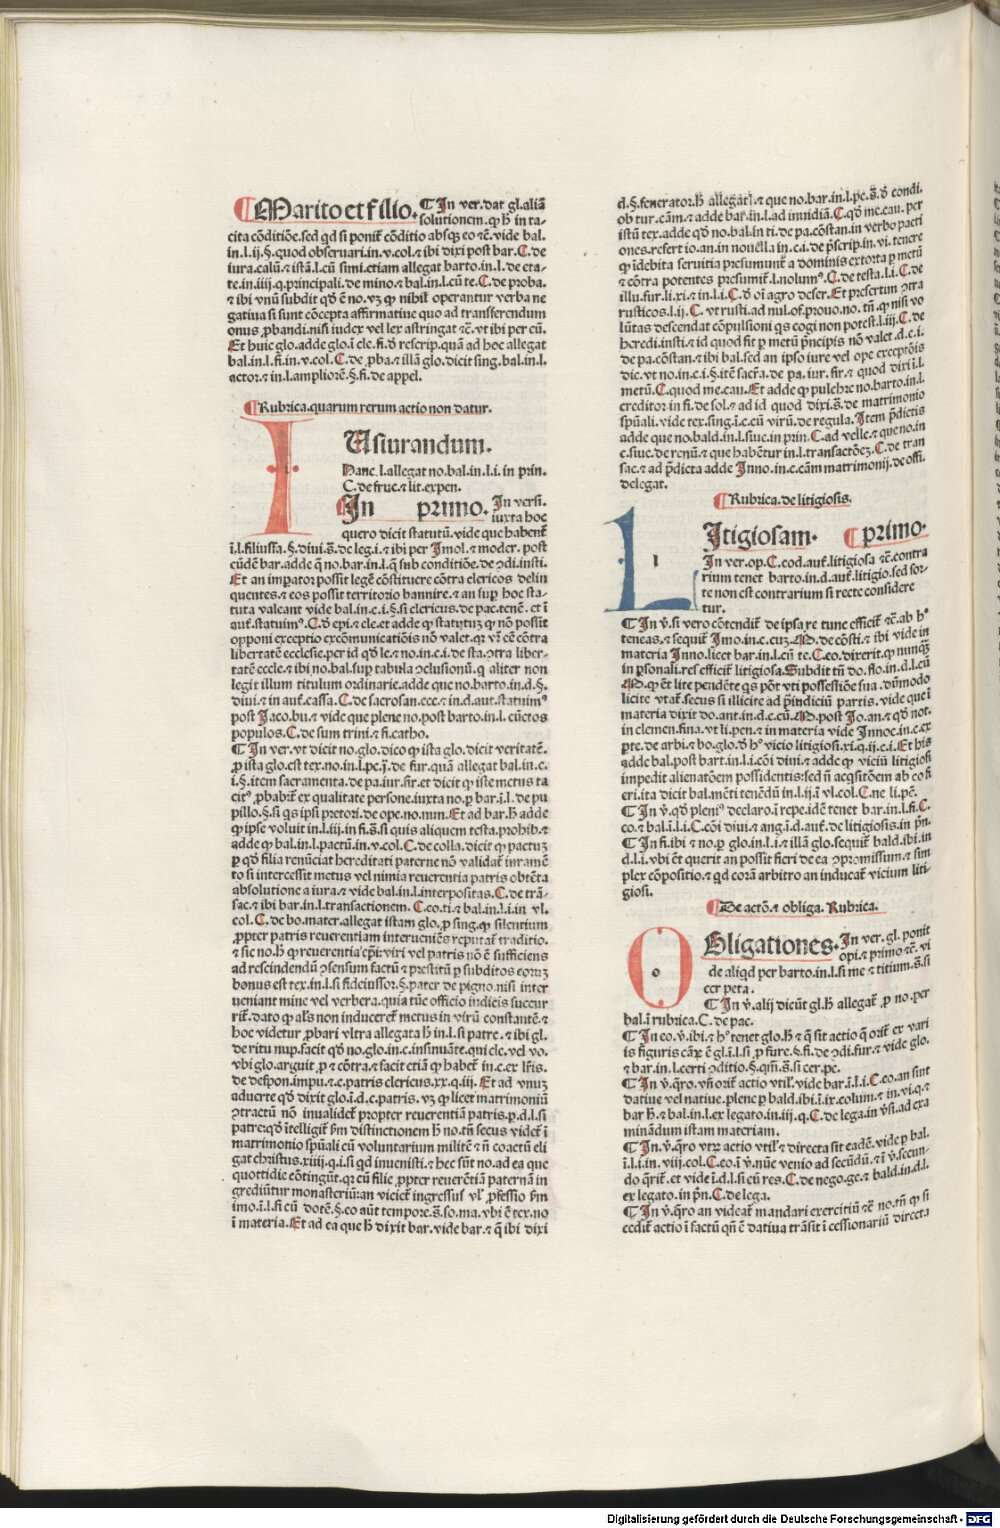 ¶Marito et filio. ¶In ver. dat gl. aliā
solutionem. ꝙ h̄ in ta-
cita cōditiōe. sed qd si ponit̄ cōditio absqꝫ eo ⁊c̄. vide bal.
in. l. ij. §. quod obseruari. in. v. col. ⁊ ibi dixi post bar. C. de
iura. calū. ⁊ istā. l. cū simi. etiam allegat barto. in. l. de eta-
te. in. iiij. q. principali. de mino. ⁊ bal. in. l. cū te. C. de proba.
⁊ ibi vnū subdit qd̄ ē no. vꝫ ꝙ nihil operantur verba ne
gatiua si sunt cōcepta affirmatiue quo ad transferendum
onus ꝓbandi. nisi iudex vel lex astringat ⁊c̄. vt ibi per eū.
Et huic glo. adde glo. ī cle. fi. d̄ rescrip. quā ad hoc allegat
bal. in. l. fi. in. v. col. C. de ꝓba. ⁊ illā glo. dicit sing. bal. in. l.
actor. ⁊ in. l. ampliorē. §. fi. de appel.
¶Rubrica. quarum rerum actio non datur.
i
Usiurandum.
Hanc. l. allegat no. bal. in. l. i. in prin.
C. de fruc. ⁊ lit. expen.
¶In primo. In versi.
iuxta hoc
quero dicit statutū. vide que habent̄
ī. l. filiusfa. §. diui. s̄. de leg. i. ⁊ ibi per Imol. ⁊ moder. post
eūdē bar. adde q̄ no. bar. in. l. q̄ sub conditiōe. de ꝯdi. insti.
Et an impator possit legē cōstituere cōtra clericos delin
quentes. ⁊ eos possit territorio bannire. ⁊ an sup hoc sta-
tuta valeant vide bal. in. c. i. §. si clericus. de pac. tenē. et ī
aut̄. statuimꝰ. C. d̄ epi. ⁊ cle. et adde ꝙ statutuꝫ ꝙ nō possit
opponi exceptio excōmunicatiōis nō valet. qꝛ vr̄ eē cōtra
libertatē ecclesie. per id qd̄ le. ⁊ no. in. c. i. de sta. ꝯtra liber-
tatē eccle. ⁊ ibi no. bal. sup tabula ꝯclusionū. q aliter non
legit illum titulum ordinarie. adde que no. barto. in. d. §.
diui. ⁊ in aut̄. cassa. C. de sacrosan. ecc. ⁊ in. d. aut. statuimꝰ
post Jaco. bu. ⁊ vide que plene no. post barto. in. l. cūctos
populos. C. de sum. trini. ⁊ fi. catho.
¶In ver. vt dicit no. glo. dico ꝙ ista glo. dicit veritatē.
ꝓ ista glo. est tex. no. in. l. pe. ī. de fur. quā allegat bal. in. c.
i. §. item sacramenta. de pa. iur. fir. et dicit ꝙ iste metus ta
citꝰ ꝓbabit̄ ex qualitate persone. iuxta no. p bar. ī. l. de pu
pillo. §. si qs ipsi pretori. de ope. no. nun. Et ad bar. h̄ adde
ꝙ ipse voluit in. l. iij. in fi. s̄. si quis aliquem testa. prohib. ⁊
adde ꝙ bal. in. l. pactū. in. v. col. C. de colla. dicit ꝙ pactuꝫ
p qd̄ filia renūciat hereditati paterne nō validat̄ iuramē
to si intercessit metus vel nimia reuerentia patris obtēta
absolutione a iura. ⁊ vide bal. in. l. interpositas. C. de trā-
sac. ⁊ ibi bar. in. l. transactionem. C. eo. ti. ⁊ bal. in. l. i. in vl.
col. C. de bo. mater. allegat istam glo. ꝓ sing. ꝙ silentium
ꝓpter patris reuerentiam interueniēs reputat̄ traditio.
⁊ sic no. h̄ ꝙ reuerentia ep̄i: viri vel patris nō ē sufficiens
ad rescindendū ꝯsensum factū ⁊ prestitū p subditos eoruꝫ
bonus est tex. in. l. si fideiussor. §. pater de pigno. nisi inter
ueniant mine vel verbera. quia tūc officio iudicis succur
rit̄. dato ꝙ al's non induceret̄ metus in virū constantē. ⁊
hoc videtur ꝓbari vltra allegata h̄ in. l. si patre. ⁊ ibi gl.
de ritu nup. facit qd̄ no. glo. in. c. insinuāte. qui cle. vel vo.
vbi glo. arguit ꝓ ⁊ cōtra. ⁊ facit etiā ꝙ habet̄ in. c. ex lr̄is.
de despon. impu. ⁊. c. patris clericus. xx. q. iij. Et ad vnuꝫ
aduerte qd̄ dixit glo. ī. d. c. patris. vꝫ ꝙ licet matrimoniū
ꝯtractū nō inualidet̄ propter reuerentiā patris. p. d. l. si
patre: qd̄ ītelligit̄ ẜm distinctionem h̄ no. tn̄ secus videt̄ ī
matrimonio sp̄uali cū voluntarium militē ⁊ n̄ coactū eli
gat christus. xiiij. q. i. si qd inuenisti. ⁊ hec sūt no. ad ea que
quottidie cōtingūt. qꝛ cū filie ꝓpter reuerētiā paternā in
grediūtur monasteriū: an viciet̄ ingressus vl' ꝓfessio ẜm
imo. ī. l. si cū dotē. §. eo aūt tempore. s̄. so. ma. vbi ē tex. no
ī materia. Et ad ea que h̄ dixit bar. vide bar. ⁊ q̄ ibi dixi
d. §. fenerator. h̄ allegat̄. ⁊ que no. bar. in. l. pe. s̄. d̄ condi.
ob tur. cām. ⁊ adde bar. in. l. ad inuidiā. C. qd̄ me. cau. per
istū tex. adde qd̄ no. bal. in ti. de pa. cōstan. in verbo pacti
ones. refert io. an. in nouella in. c. i. de p̄scrip. in. vi. tenere
ꝙ īdebita seruitia presumunt̄ a dominis extorta p metū
⁊ cōtra potentes presumit̄. l. nolumꝰ. C. de testa. l. i. C. de
illu. fur. li. xi. ⁊ in. l. i. C. d̄ oi agro deser. Et presertim ꝯtra
rusticos. l. ij. C. vt rusti. ad nul. of. prouo. no. tn̄. ꝙ nisi vo
lūtas descendat cōpulsioni qs cogi non potest. l. iij. C. de
heredi. insti. ⁊ id quod fit p metū p̄ncipis nō valet. d. c. i.
de pa. cōstan. ⁊ ibi bal. sed an ipso iure vel ope exceptōis
dic. vt no. in. c. i. §. itē sacr̄a. de pa. iur. fir. ⁊ quod dixi ī. l.
metū. C. quod me. cau. Et adde ꝙ pulchre no. barto. in. l.
creditor in fi. de sol. ⁊ ad id quod dixi. s̄. de matrimonio
sp̄uali. vide tex. sing. i. c. cū virū. de regula. Item p̄dictis
adde que no. bald. in. l. siue. in prin. C. ad velle. ⁊ que no. in
c. siue. de renū. ⁊ que habētur in. l. transactōeꝫ. C. de tran
sac. ⁊ ad p̄dicta adde Inno. in. c. cām matrimonij. de offi.
delegat.
¶Rubrica. de litigiosis.
l
Itigiosam. ¶primo.
In ver. op. C. eod. aut̄. litigiosa ⁊c̄. contra
rium tenet barto. in. d. aut̄. litigio. sed for-
te non est contrarium si recte considere
tur.
¶In v̄. si vero cōtendit̄ de ipsa re tunc efficit̄ ⁊c̄. ab hꝰ
teneas. ⁊ sequit̄ Imo. in. c. cuꝫ. M. de cōsti. ⁊ ibi vide in
materia Inno. licet bar. in. l. cū te. C. eo. dixerit. ꝙ nunqꝫ
in p̄sonali. res efficit̄ litigiosa. Subdit tn̄ do. flo. in. d. l. cū
M. ꝙ ēt lite pendēte qs pōt vti possessiōe sua. dūmodo
licite vtat̄. secus si illicite ad p̄iudiciū partis. vide que ī
materia dixit do. ant. in. d. c. cū. M. post Jo. an. ⁊ qd̄ not.
in clemen. fina. vt li. pen. ⁊ in materia vide Innoc. in. c. ex
pte. de arbi. ⁊ bo. glo. d̄ hꝰ vicio litigiosi. xi. q. ij. c. i. Et his
adde bal. post bart. in. l. i. cōi diui. ⁊ adde ꝙ viciū litigiosi
impedit alienatōem possidentis: sed n̄ acqsitōem ab eo fi
eri. ita dicit bal. mēti tenēdū in. l. ij. ī vl. col. C. ne li. pē.
¶In v̄. qd̄ pleniꝰ declaro. i repe. idē tenet bar. in. l. fi. C.
eo. ⁊ bal. ī. l. i. C. cōi diui. ⁊ ang. ī. d. aut̄. de litigiosis. in p̄n.
¶In fi. ibi ⁊ no. ꝓ glo. in. l. i. ⁊ illā glo. sequit̄ bald. ibi. in
d. l. i. vbi ēt querit an possit fieri de ea ꝯpromissum. ⁊ sim
plex cōpositio. ⁊ qd corā arbitro an inducat̄ vicium liti-
giosi.
¶De actō. ⁊ obliga. Rubrica.
o
Bligationes. In ver. gl. ponit
opi. ⁊ primo ⁊c̄. vi
de aliqd per barto. in. l. si me ⁊ titium. s̄. si
cer peta.
¶In v̄. alij dicūt gl. h̄ allegat̄ ꝓ no. per
bal. ī rubrica. C. de pac.
¶In eo. v̄. ibi. ⁊ hꝰ tenet glo. h̄ ⁊ q̄ sit actio q̄ orit̄ ex vari
is figuris cāꝝ ē gl. ī. l. si ꝓ fure. §. fi. de ꝯdi. fur. ⁊ vide glo.
⁊ bar. in. l. certi ꝯditio. §. qm̄. s̄. si cer. pe.
¶In v̄. q̄ro. vn̄ orit̄ actio vtil'. vide bar. ī. l. i. C. eo. an sint
datiue vel natiue. plene p bald. ibi. ī. ix. colum. ⁊ in. vi. q. ⁊
bar h̄. ⁊ bal. in. l. ex legato. in. iij. q. C. de lega. in v̄si. ad exa
minādum istam materiam.
¶In v̄. q̄ro vtꝝ actio vtil' ⁊ directa sit eadē. vide p bal.
ī. l. i. in. viij. col. C. eo. ī v̄. nūc venio ad secūdū. ⁊ ī v̄. secun-
do q̄rit̄. et vide ī. d. l. si cū res. C. de nego. ge. ⁊ bald. in. d. l.
ex legato. in p̄n. C. de lega.
¶In v̄. q̄ro an videat̄ mandari exercitiū ⁊c̄ no. tn̄ ꝙ si
cedit̄ actio ī factū qn̄ ē datiua trāsit ī cessionariū directa
Digitalisierung gefördert durch die Deutsche Forschungsgemeinschaft - DFG